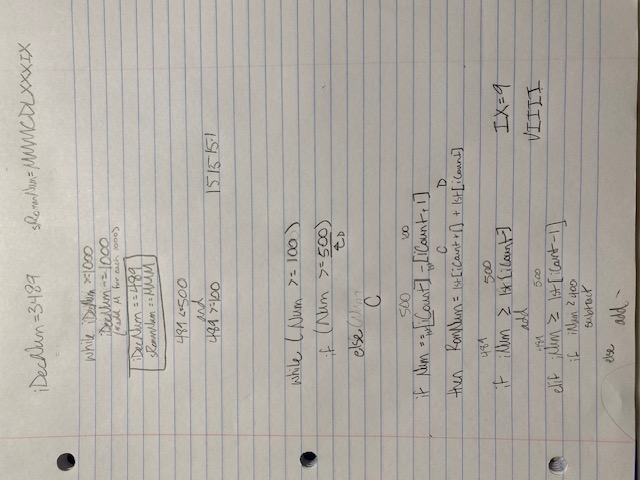 iDecNum=3489 sRomNum=MMMCDLXXXIX
while iDecNum >=1000
iDecNum -= 1000
(*add M for each 1000)
iDecNum == 489
sRomNum == MMM
489 <=500
and
489 >=100 15 15 15.1
while (Num >= 100)
if (Num >= 500)
D
else (Num
C
500 100
if Num == lst[iCount] - lst[iCount+1]
C D
then RomNum = lst[iCount+1] + lst[iCount]
489 500
if iNum ≥ lst[iCount] IX=9
add
VIIII
489 500
elif iNum ≥ lst[iCount-1]
if iNum ≥ 400
subtract
else
add -